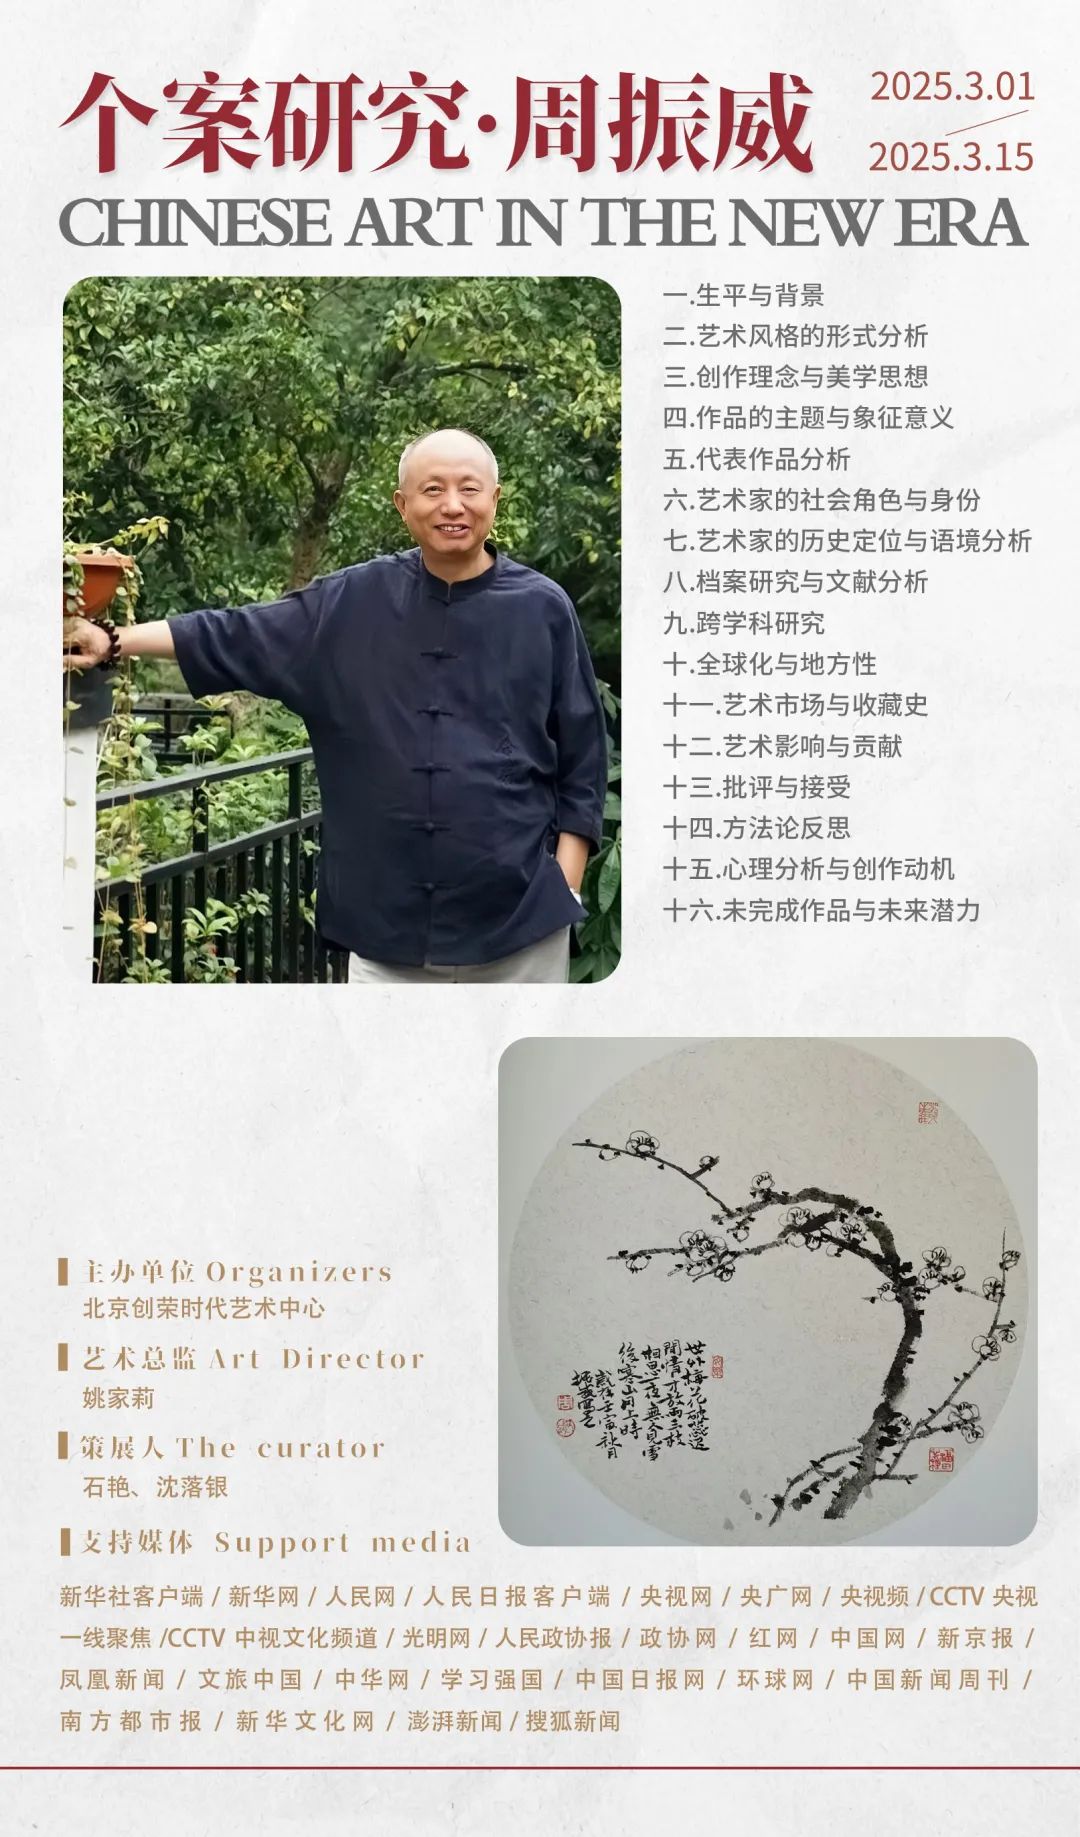 个案研究·周振威
2025.3.01
2025.3.15
CHINESE ART IN THE NEW ERA
一.生平与背景
二.艺术风格的形式分析
三.创作理念与美学思想
四.作品的主题与象征意义
五.代表作品分析
六.艺术家的社会角色与身份
七.艺术家的历史定位与语境分析
八.档案研究与文献分析
九.跨学科研究
十.全球化与地方性
十一.艺术市场与收藏史
十二.艺术影响与贡献
十三.批评与接受
十四.方法论反思
十五.心理分析与创作动机
十六.未完成作品与未来潜力
世外梅花破蕊迟
閒情才放兩三枝
相思一夜無人見雪
後寒山月上時
歲在壬寅秋月
振威寫之
主办单位 Organizers
北京创荣时代艺术中心
艺术总监 Art Director
姚家莉
策展人 The curator
石艳、沈落银
支持媒体 Support media
新华社客户端 / 新华网 / 人民网 / 人民日报客户端 / 央视网 / 央广网 / 央视频 / CCTV 央视
一线聚焦 /CCTV 中视文化频道 / 光明网 / 人民政协报 / 政协网 / 红网 / 中国网 / 新京报 /
凤凰新闻 / 文旅中国 / 中华网 / 学习强国 / 中国日报网 / 环球网 / 中国新闻周刊 /
南方都市报 / 新华文化网 / 澎湃新闻 / 搜狐新闻